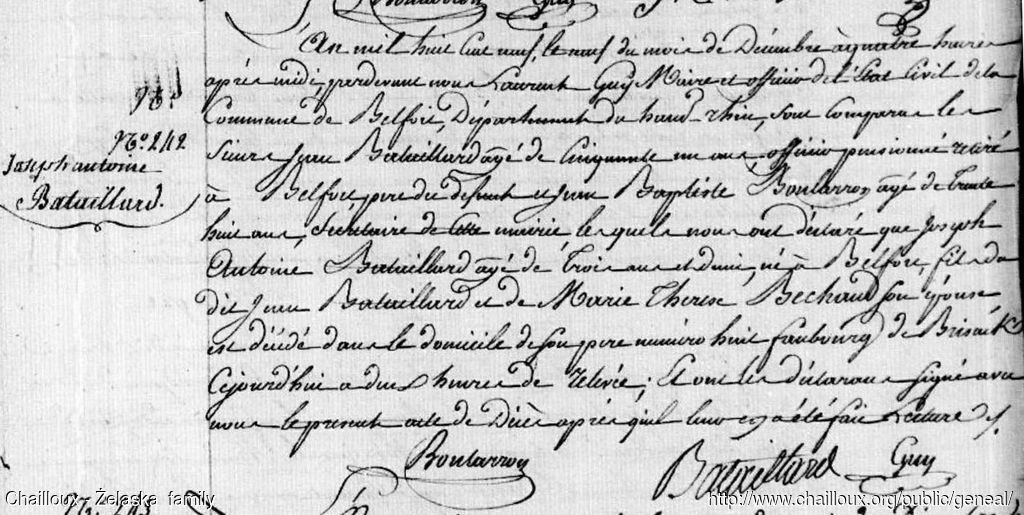 Boularron Guy
An mil huit Cent neuf, le neuf du mois de Décembre à quatre heures
après midi, pardevant nous Laurent Guy Maire et officier de l'État Civil de la
Commune de Belfort, Département du haut-rhin, sont comparus les
Sieurs Jean Bataillard agé de Cinquante un ans, officier pensionné retiré
à Belfort, pere du defunt et Jean Baptiste Boularron agé de trente
huit ans, Secretaire de cette mairie lesquels nous ont déclaré que Joseph
Antoine Bataillard agé de trois ans et demi, né à Belfort, fils du
dit Jean Bataillard et de Marie Therese Bechaud son épouse
est décédé dans le domicile de son pere numéro huit faubourg de Brisack
Cejourd'hui a deux heures de relevée; Et ont les déclarans signé avec
nous le present acte de Décès après qu'il leur en a été fait Lecture
Boularron Bataillard Guy
N.º 242
Joseph antoine
Bataillard.
N.º 243
Chailloux-Żelaska family
http://www.chailloux.org/public/geneal/